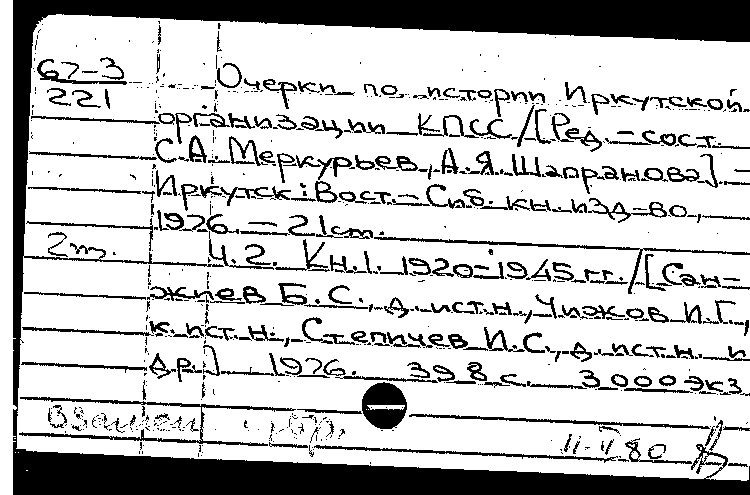 67-3
221
Очерки по истории Иркутской
организации КПСС/[Ред.-сост.
С.А. Меркурьев, А.Я. Шапранова] –
Иркутск: Вост.-Сиб. кн. изд-во,
1976. – 21 см.
2т. Ч.2. Кн.1. 1920-1945 гг./[Сан-
жиев Б.С., д. ист. н., Чижов И.Г.,
к. ист. н., Степичев И.С., д. ист. н. и
др.] 1976. 398 с. 3000 экз
взамен
11-II 80